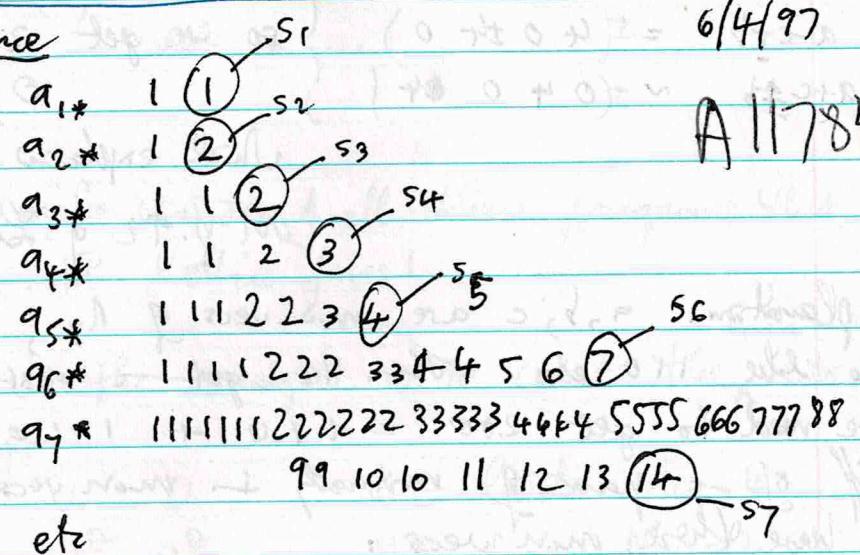 nce S1 6/4/97
a1* 1 1
S2
a2* 1 2 A1178
a3* 1 1 2 S3
a4* 1 1 2 3 S4
a5* 1 1 1 2 2 3 4 S5
a6* 1 1 1 1 2 2 2 3 3 4 4 5 6 7 S6
a7* 1111111 222222 33333 4444 5555 666 777 88
99 10 10 11 12 13 14 S7
etc